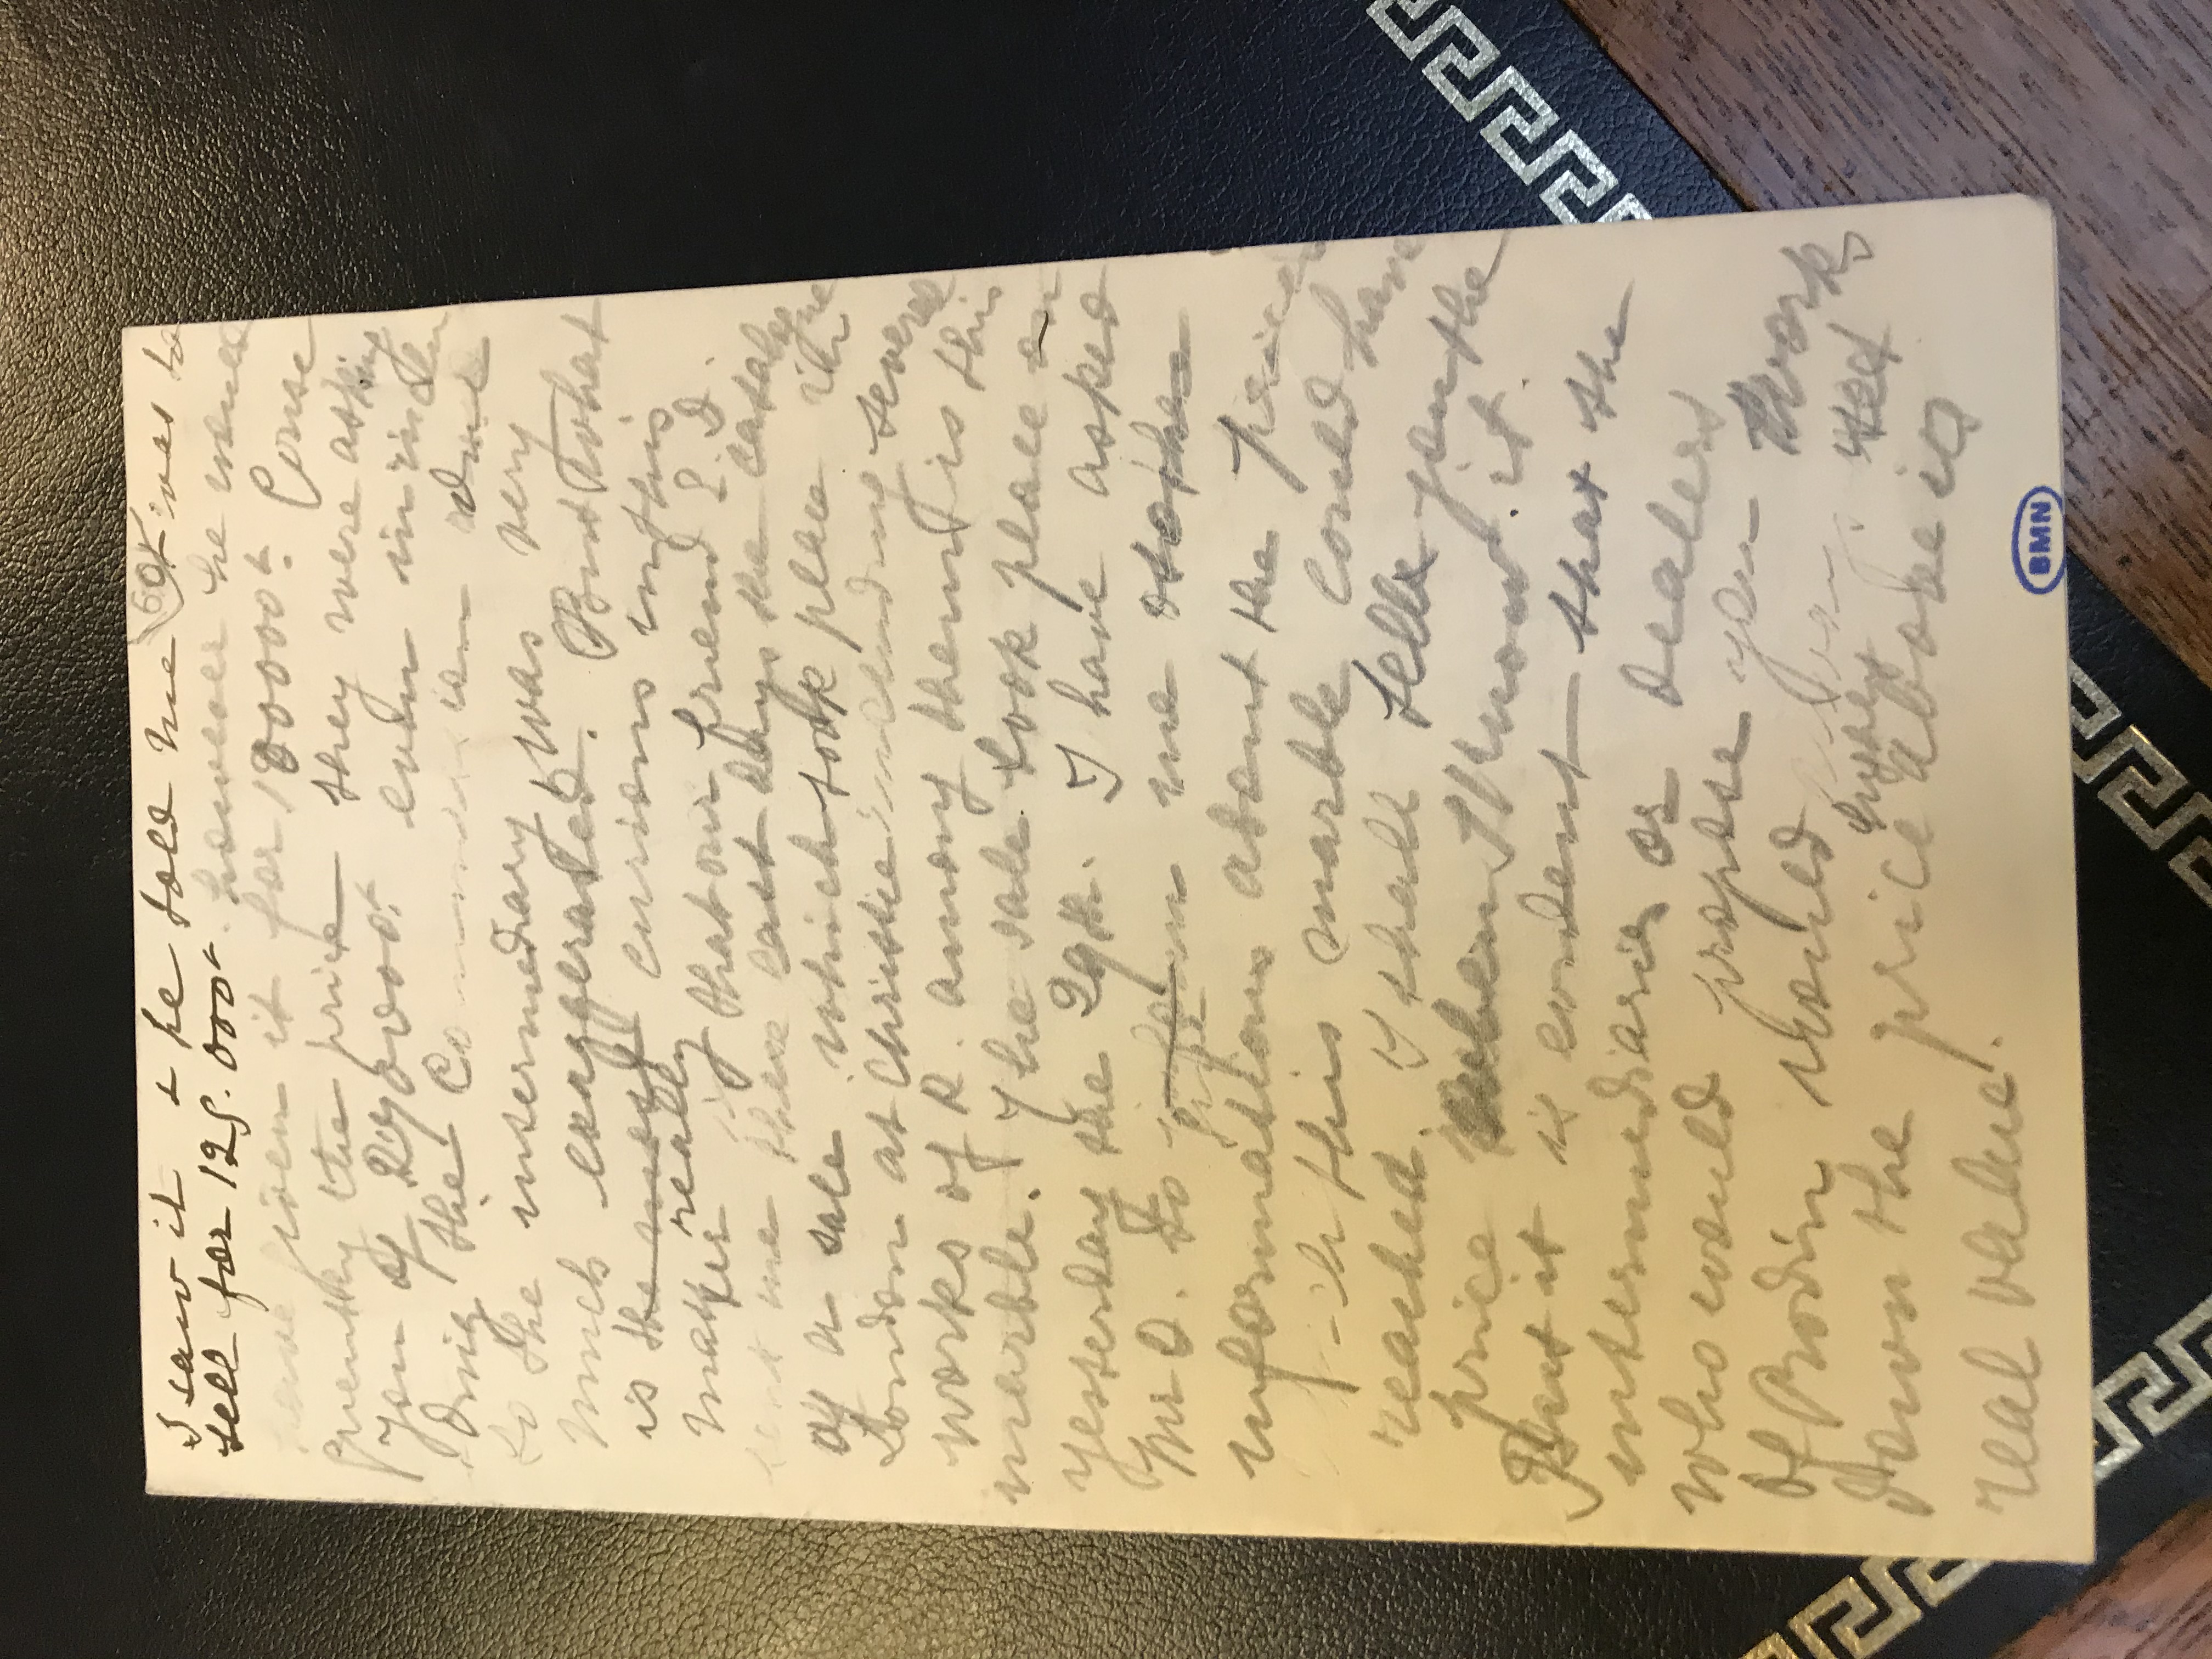 I saw it & he told me it was to
sell for 125.000f. however he would
have given it for 120000f. Conse
quently the price they were asking
you of 270000f. even including
the Co due
to the intermediary was very
much exaggerated. But what
is the most curious in this
matter really is that our friend S. D.
sent me these last days the catalogue
of a sale which took place in
London at Christie including several
works of R. among them is this
marble. The sale took place on
yesterday the 29th. I have asked
Mr D. to give me other
informations about the price
this marble could have
reached. I shall tell you the
price when I know it.
But it is evident that the
intermediaries or dealers
who would propose you works
of Rodin asked
even the price above its
real value.
BMN